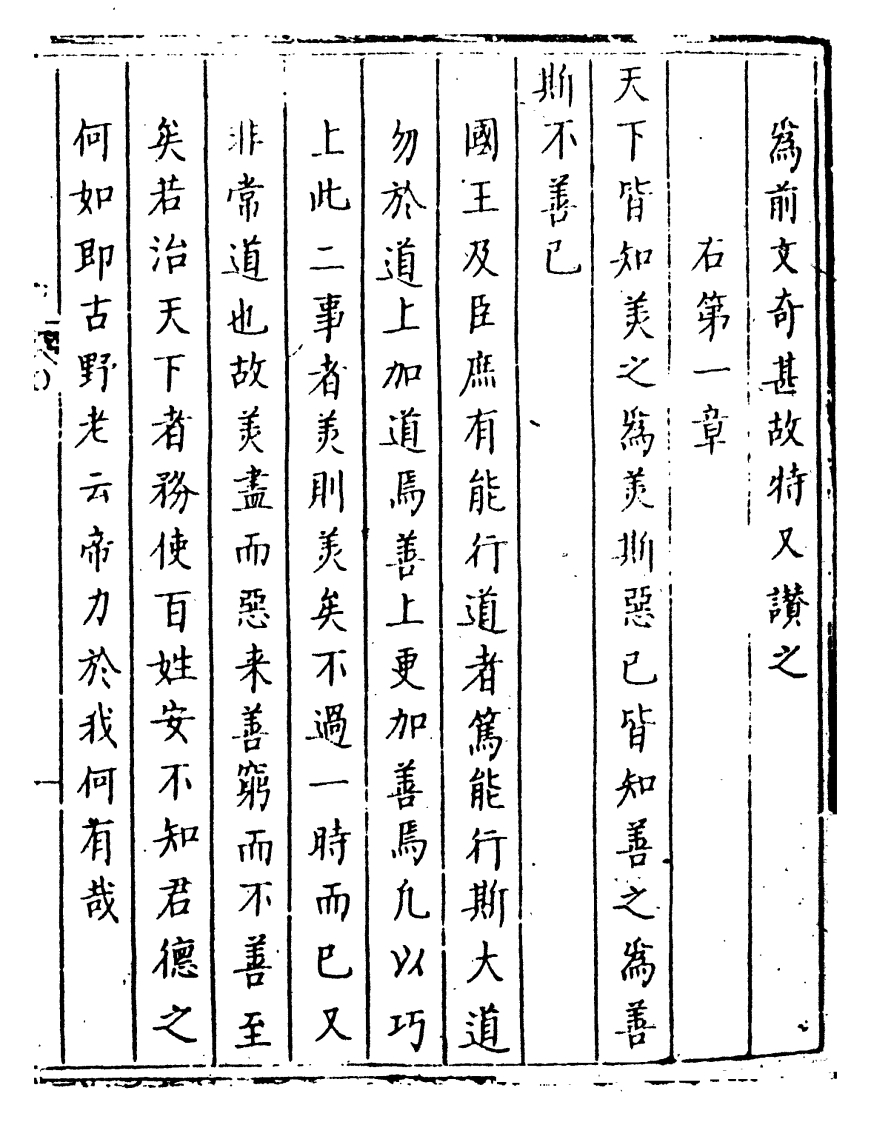 為前文奇甚故特又讃之
右第一章
天下皆知羙之為羙斯惡已皆知善之為善
斯不善已
國王及臣庶有能行道者篤能行斯大道
勿於道上加道焉善上更加善焉凢以巧
上此二事者羙則羙矣不過一時而已又
非常道也故羙盡而惡来善窮而不善至
矣若治天下者務使百姓安不知君德之
何如即古野老云帝力於我何有哉